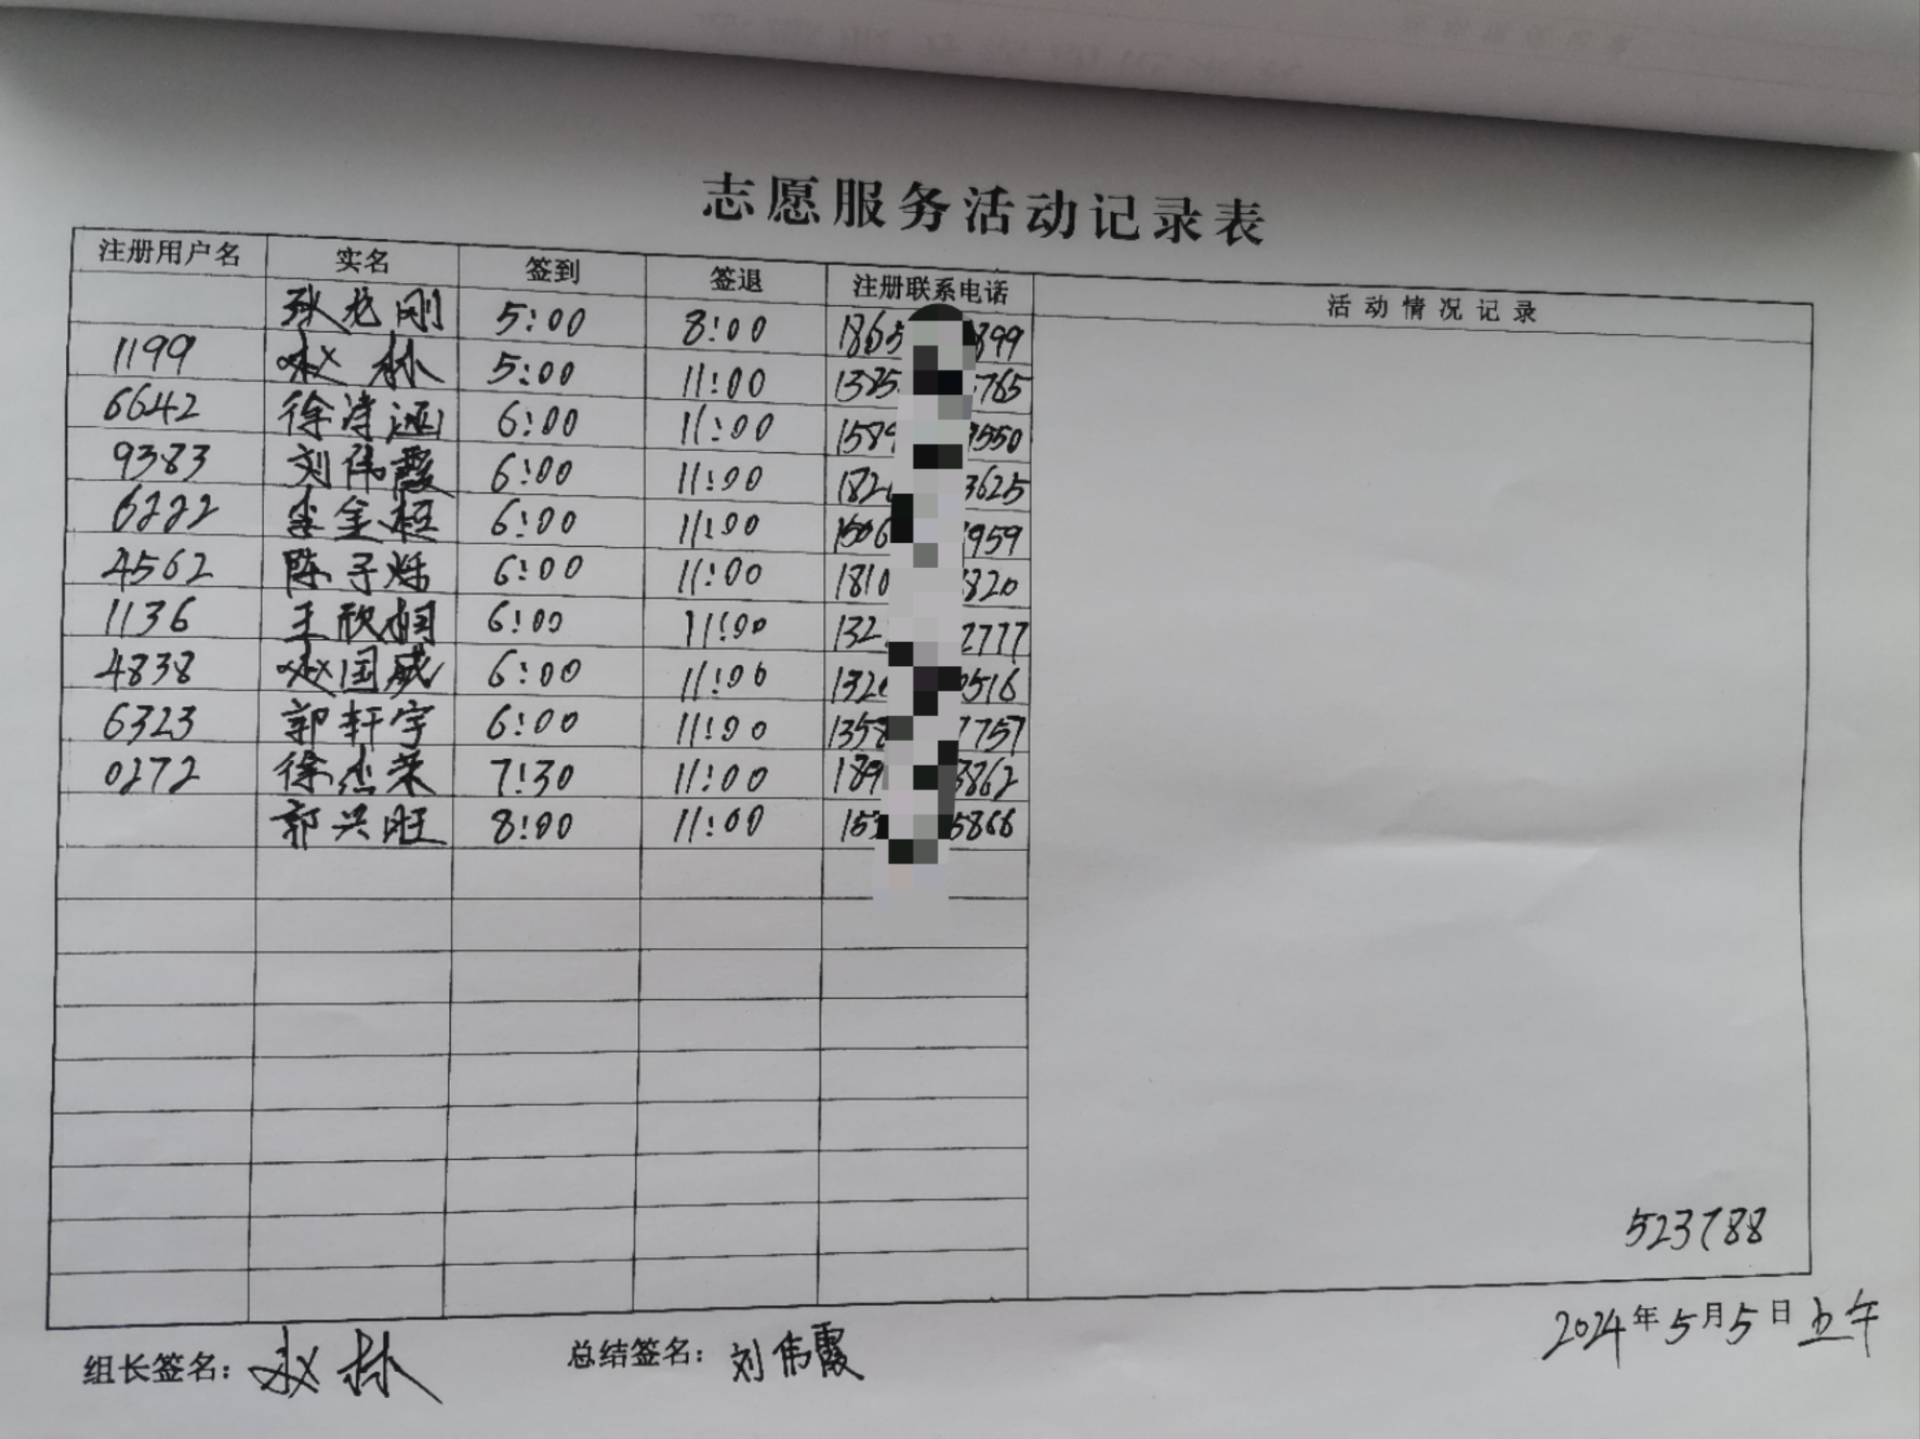 志愿服务活动记录表
注册用户名 实名 签到 签退 注册联系电话 活动情况记录
张龙刚 5:00 8:00 1865 899
1199 赵林 5:00 11:00 1385 765
6642 徐涛涵 6:00 11:00 1589 9550
9383 刘伟霞 6:00 11:00 182 3625
6222 李金柱 6:00 11:00 1506 1959
4562 陈子烁 6:00 11:00 1810 820
1136 王欣桐 6:00 11:00 132 2777
4838 赵国威 6:00 11:00 132 0516
6323 郭轩宇 6:00 11:00 1358 7757
0272 徐杰荣 7:30 11:00 189 3862
郭兴旺 8:00 11:00 15 5866
523788
组长签名：赵林 总结签名：刘伟霞 2024年5月5日上午